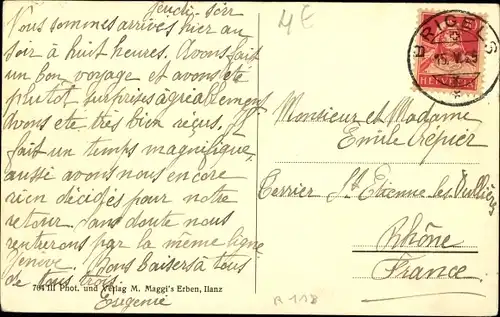 Jeudi soir
Vous sommes arrivés hier au
soir à huit heures. Avons fait
un bon voyage et avons été
plutot surpris agréablement
Avons ete tres bien reçus. Il
fait un temps magnifique,
aussi avons nous encore
rien décidés pour notre
retour. Sans doute nous
rentrerons par la même ligne
Genève. Bons baisers à tous
de tous trois.
Eugenie
764 III Phot. und Verlag M. Maggi's Erben, Ilanz
4 E
BRIGELS
15. V.
HELVETIA
Monsieur et Madame
Emile
St Etienne les
Rhône
France
R 118